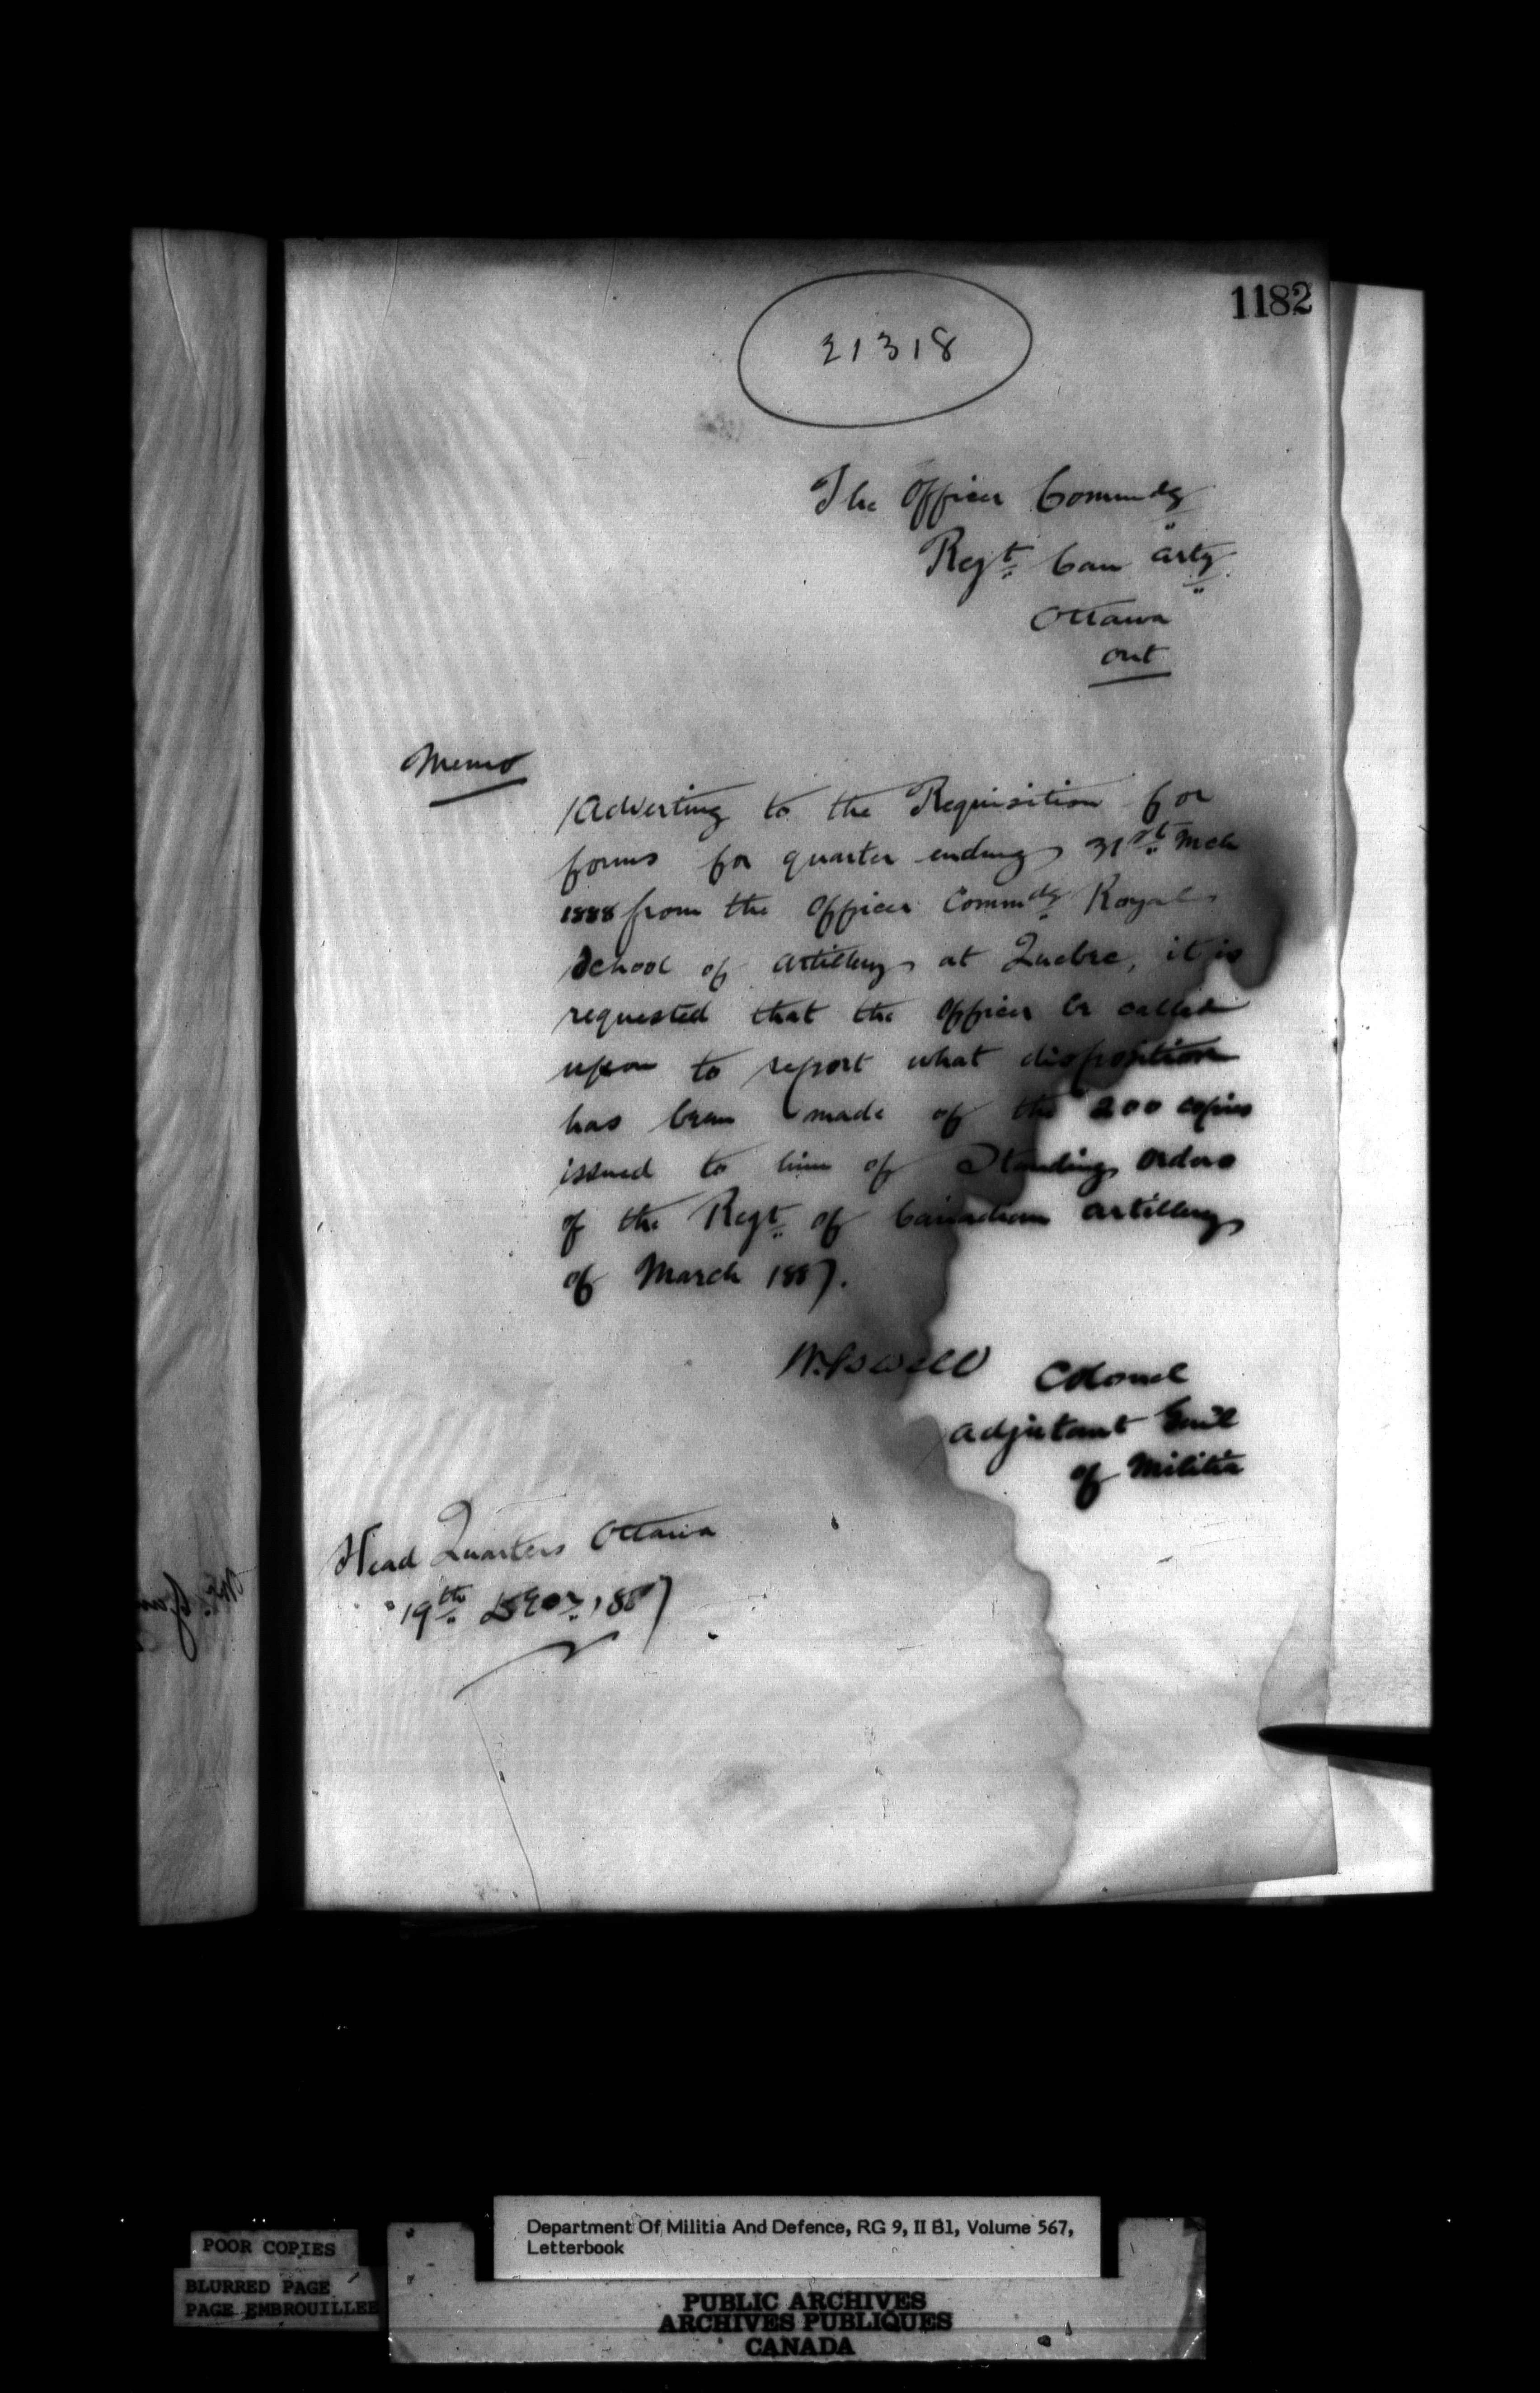 1182
21318
The Officer Commdg
Regt Can Arty
Ottawa
Ont
Memo
Adverting to the Requisition for
forms for quarter ending 31st Mch
1888 from the Officer Commdg Royal
School of Artillery at Quebec, it is
requested that the Officer be called
upon to report what disposition
has been made of the 200 copies
issued to him of Standing Orders
of the Regt of Canadian Artillery
of March 1887.
Powell Colonel
Adjutant Genl
of Militia
Head Quarters Ottawa
19th Decr 1887
Department Of Militia And Defence, RG 9, II B1, Volume 567,
Letterbook
POOR COPIES
BLURRED PAGE
PAGE EMBROUILLEE
PUBLIC ARCHIVES
ARCHIVES PUBLIQUES
CANADA